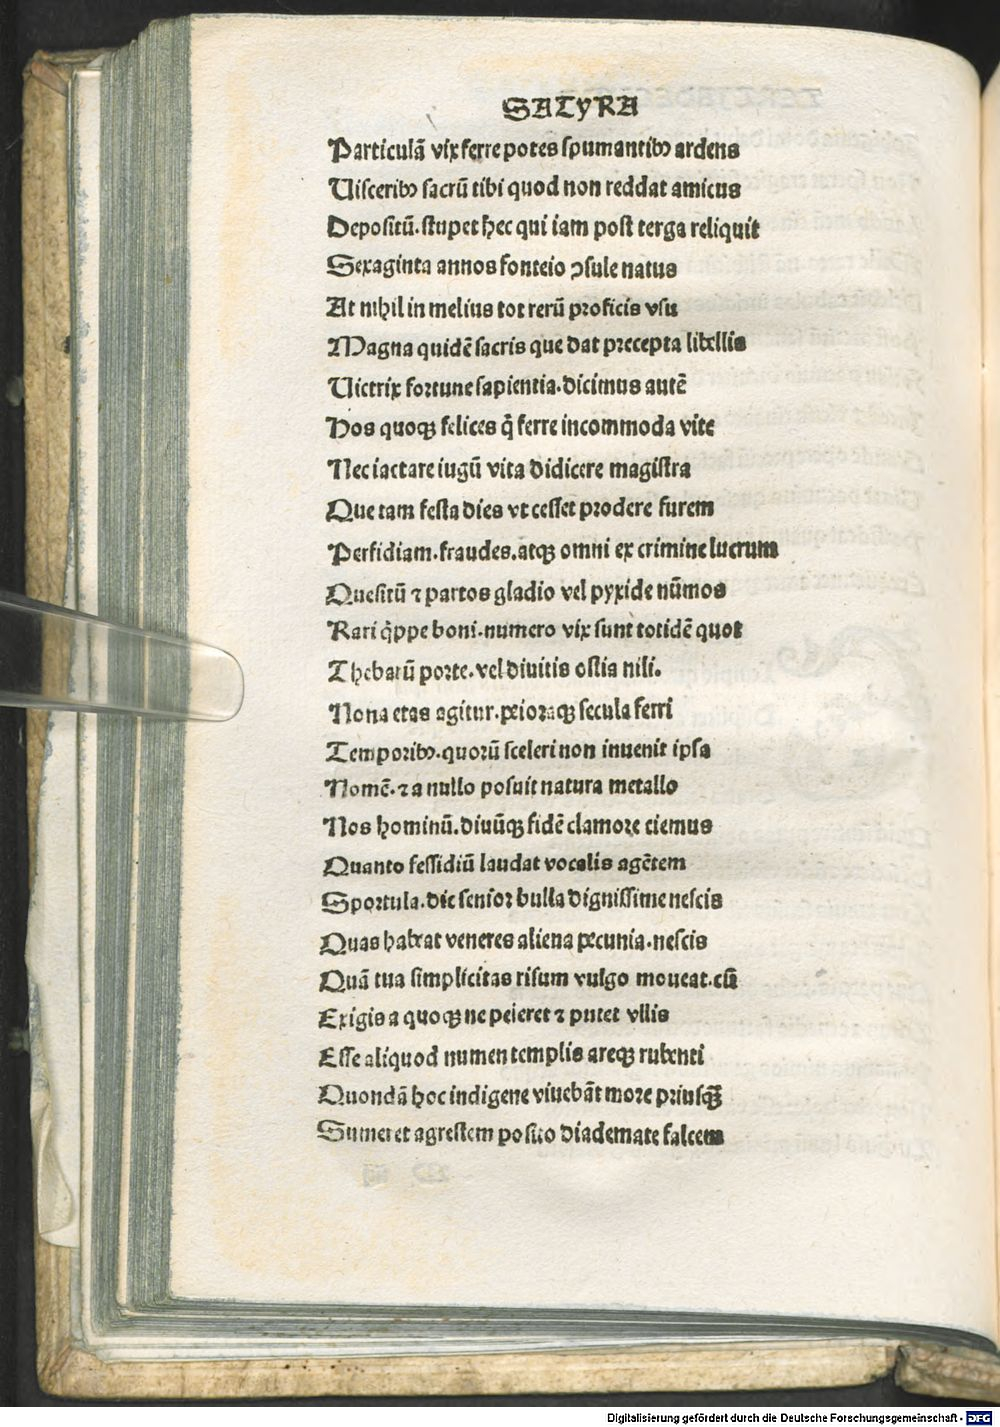 SATyRA
Particulā vix ferre potes spumantibꝯ ardens
Uisceribꝯ sacrū tibi quod non reddat amicus
Depositū. stupet hec qui iam post terga reliquit
Sexaginta annos fonteio ꝯsule natus
At nihil in melius tot rerū proficis vsu
Magna quidē sacris que dat precepta libellis
Uictrix fortune sapientia. dicimus autē
Hos quoqꝫ felices q̄ ferre incommoda vite
Nec iactare iugū vita didicere magistra
Que tam festa dies vt cesset prodere furem
Perfidiam. fraudes. atqꝫ omni ex crimine lucrum
Quesitū ⁊ partos gladio vel pyxide nūmos
Rari q̄ppe boni. numero vix sunt totidē quot
Thebarū porte. vel diuitis ostia nili.
Nona etas agitur. peioraqꝫ secula ferri
Temporibꝯ. quorū sceleri non inuenit ipsa
Nomē. ⁊ a nullo posuit natura metallo
Nos hominū. diuūqꝫ fidē clamore ciemus
Quanto fessidiū laudat vocalis agētem
Sportula. dic senior bulla dignissime nescis
Quas habeat veneres aliena pecunia. nescis
Quā tua simplicitas risum vulgo moueat. cū
Exigis a quoqꝫ ne peieret ⁊ putet vllis
Esse aliquod numen templis areqꝫ rubenti
Quondā hoc indigene viuebāt more priusqꝫ̄
Sumeret agrestem posito diademate falcem
Digitalisierung gefördert durch die Deutsche Forschungsgemeinschaft - DFG